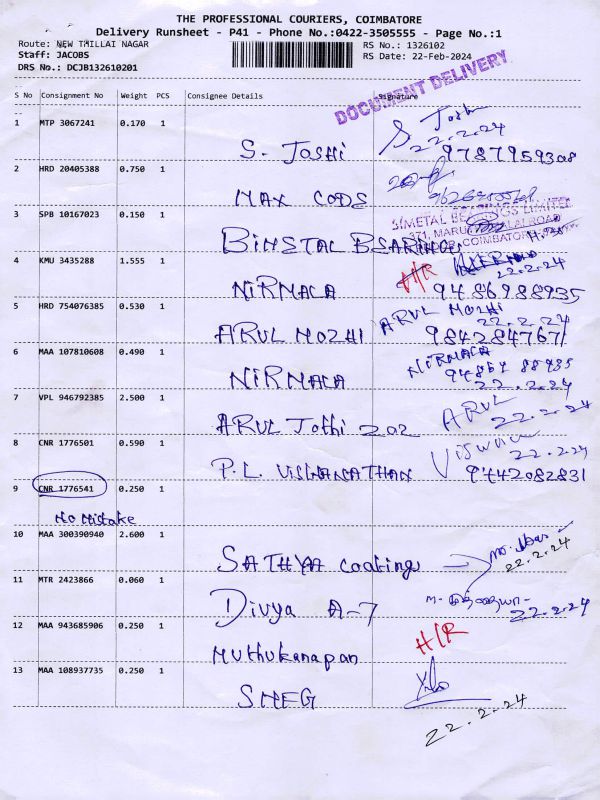 THE PROFESSIONAL COURIERS, COIMBATORE
Delivery Runsheet - P41 - Phone No.:0422-3505555 - Page No.:1
Route: NEW THILLAI NAGAR
RS No.: 1326102
Staff: JACOBS
RS Date: 22-Feb-2024
DRS No.: DCJB132610201
DOCUMENT DELIVERY
S No Consignment No Weight PCS Consignee Details Signature
1 MTP 3067241 0.170 1
S. Joshi
22.2.24
S. JOSHI 9787959308
2 HRD 20405388 0.750 1
MAX CODS
3 SPB 10167023 0.150 1
SIMETAL BEARINGS LIMITED
371, MARUDHAMALAI ROAD
COIMBATORE
BIMETAL BEARING
4 KMU 3435288 1.555 1
H/R
22.2.24
NIRMALA 9486988935
5 HRD 754076385 0.530 1
ARUL MOZHI
22.2.24
ARUL MOZHI 9842847671
6 MAA 107810608 0.490 1
NIRMALA
22.2.24
NIRMALA
7 VPL 946792385 2.500 1
ARUL
22.2.24
ARUL Jothi 202
8 CNR 1776501 0.590 1
22.2.24
P.L. VISWANATHAN 9442082831
9 CNR 1776541 0.250 1
No Mistake
10 MAA 300390940 2.600 1
22.2.24
SATHYA coating
11 MTR 2423866 0.060 1
22.2.24
Divya A-7
12 MAA 943685906 0.250 1
H/R
Muthukanapan
13 MAA 108937735 0.250 1
SNEG
22.2.24